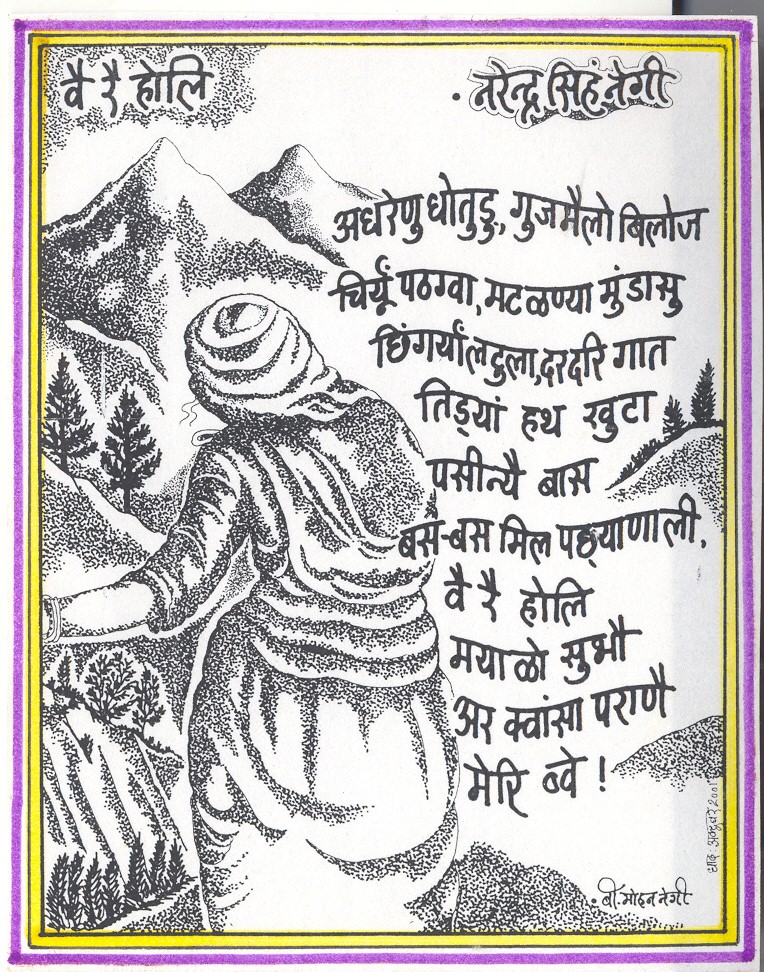 वै रै होलि
. नरेन्द्र सिहं नेगी
अधरेणु धोतुडु, गुजमैलो बिलोज
चिर्यूं पठग्वा, मटळण्या मुंडासु
छिंगर्यांलटुला,दरदरि गात
तिड़्यां हथ खुटा
पसीन्यै बास
बस-बस मिल पछ्याणाली.
वै रै होलि
मयाळो सुभौ
अर क्वांसा पराणै
मेरि ब्वे !
. बी. मोहन नेगी